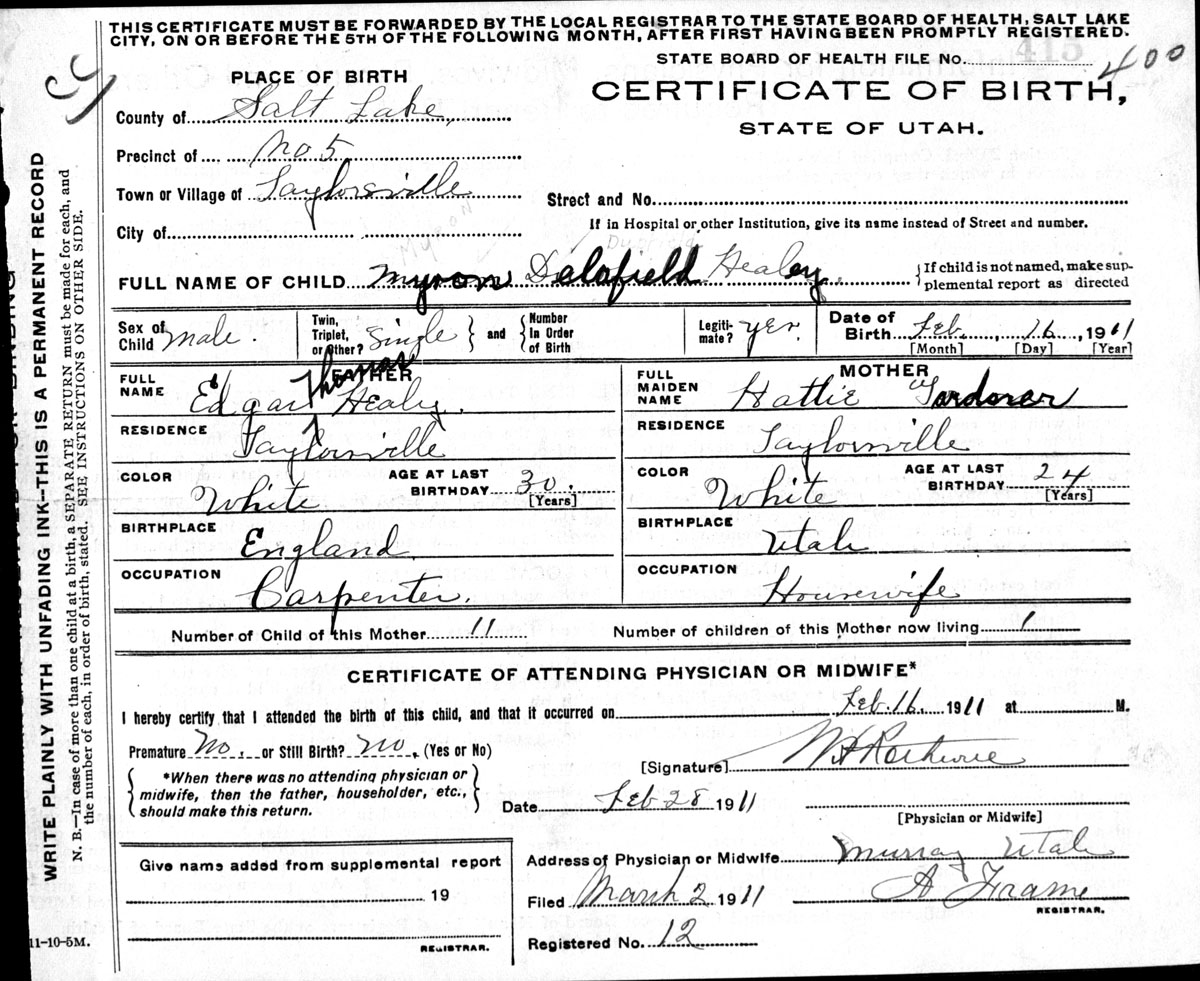 THIS CERTIFICATE MUST BE FORWARDED BY THE LOCAL REGISTRAR TO THE STATE BOARD OF HEALTH, SALT LAKE
CITY, ON OR BEFORE THE 5TH OF THE FOLLOWING MONTH, AFTER FIRST HAVING BEEN PROMPTLY REGISTERED.
STATE BOARD OF HEALTH FILE No. 415 400
PLACE OF BIRTH
CERTIFICATE OF BIRTH,
STATE OF UTAH.
County of Salt Lake,
Precinct of No 5
Town or Village of Taylorsville
Street and No.
City of
If in Hospital or other Institution, give its name instead of Street and number.
Myron
FULL NAME OF CHILD Myron Delafield Healey.
{If child is not named, make sup-
plemental report as directed
Sex of Child male.
Twin, Triplet, or Other? Single } and { Number In Order of Birth
Legiti- mate? yes.
Date of Birth Feb. 16, 1911
[Month] [Day] [Year]
FATHER
FULL NAME Edgar Thomas Healey.
RESIDENCE Taylorsville
COLOR White
AGE AT LAST BIRTHDAY 30.
[Years]
BIRTHPLACE England
OCCUPATION Carpenter.
MOTHER
FULL MAIDEN NAME Hattie Gardener
RESIDENCE Taylorsville
COLOR White
AGE AT LAST BIRTHDAY 24
[Years]
BIRTHPLACE Utah
OCCUPATION Housewife
Number of Child of this Mother 11 Number of children of this Mother now living 1
CERTIFICATE OF ATTENDING PHYSICIAN OR MIDWIFE*
I hereby certify that I attended the birth of this child, and that it occurred on Feb. 16. 1911 at M.
Premature No. or Still Birth? no. (Yes or No)
[Signature]
{*When there was no attending physician or
midwife, then the father, householder, etc.,
should make this return.}
Date Feb 28 1911
[Physician or Midwife]
Give name added from supplemental report
19
REGISTRAR.
Address of Physician or Midwife Murray Utah
Filed March 2 1911 A Frame
REGISTRAR.
Registered No. 12
11-10-5M.
WRITE PLAINLY WITH UNFADING INK—THIS IS A PERMANENT RECORD
N. B.—In case of more than one child at a birth, a SEPARATE RETURN must be made for each, and
the number of each, in order of birth, stated. SEE INSTRUCTIONS ON OTHER SIDE.